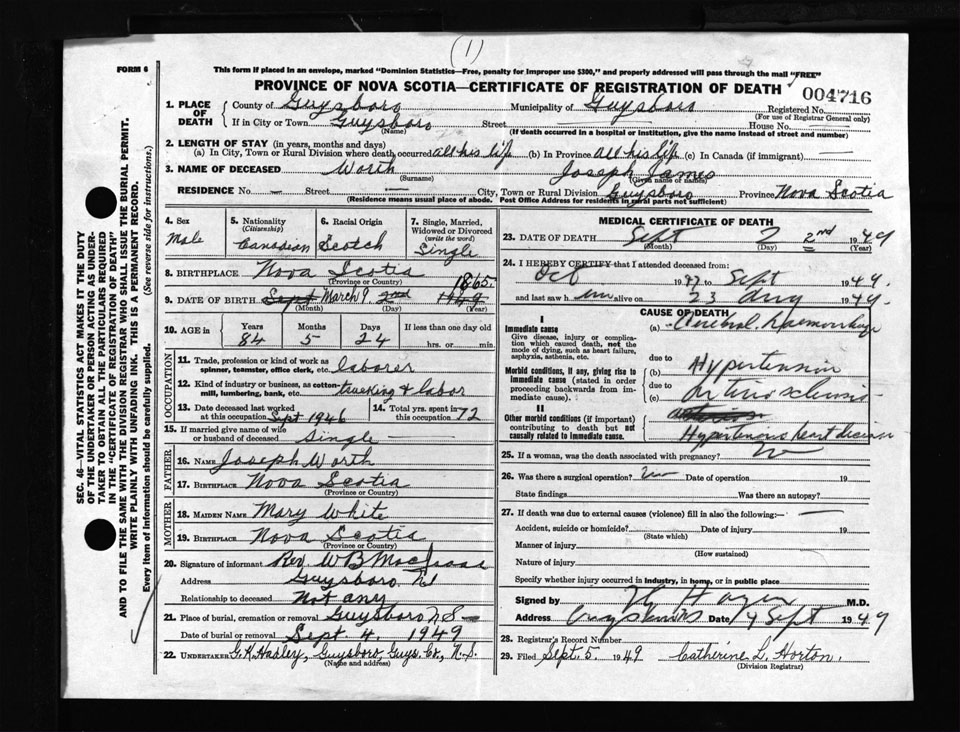 (1)
FORM 6
This form if placed in an envelope, marked "Dominion Statistics—Free, penalty for improper use $300," and properly addressed will pass through the mail "FREE"
PROVINCE OF NOVA SCOTIA—CERTIFICATE OF REGISTRATION OF DEATH
004716
1. PLACE OF DEATH
County of Guysboro Municipality of Guysboro Registered No.
(For use of Registrar General only)
If in City or Town Guysboro Street House No.
(Name) (If death occurred in a hospital or institution, give name instead of street and number)
2. LENGTH OF STAY (in years, months and days)
(a) In City, Town or Rural Division where death occurred all his life (b) In Province all his life (c) In Canada (if immigrant) —
3. NAME OF DECEASED Worth Joseph James
(Surname) (Given name or names)
RESIDENCE No. — Street — City, Town or Rural Division Guysboro Province Nova Scotia
(Residence means usual place of abode. Post Office Address for residents in rural parts not sufficient)
4. Sex
Male
5. Nationality
(Citizenship)
Canadian
6. Racial Origin
Scotch
7. Single, Married, Widowed or Divorced
(write the word)
Single
8. BIRTHPLACE Nova Scotia
(Province or Country)
1865.
9. DATE OF BIRTH Sept March 9. 2nd 1949
(Month) (Day) (Year)
10. AGE in
Years Months Days If less than one day old
84 5 24 hrs. or min.
OCCUPATION
11. Trade, profession or kind of work as
spinner, teamster, office clerk, etc. laborer
12. Kind of industry or business, as cotton-
mill, lumbering, bank, etc. trucking & labor
13. Date deceased last worked
at this occupation Sept 1946
14. Total yrs. spent in
this occupation 72
15. If married give name of wife
or husband of deceased Single
FATHER
16. NAME Joseph Worth
17. BIRTHPLACE Nova Scotia
(Province or Country)
MOTHER
18. MAIDEN NAME Mary White
19. BIRTHPLACE Nova Scotia
(Province or Country)
20. Signature of informant Rev. W B MacIsaac
Address Guysboro. NS
Relationship to deceased Not any
21. Place of burial, cremation or removal Guysboro N S
Date of burial or removal Sept. 4. 1949
22. UNDERTAKER G. K. Hadley, Guysboro, Guys. Co., N. S.
(Name and address)
MEDICAL CERTIFICATE OF DEATH
23. DATE OF DEATH Sept 2 2nd 1949
(Month) (Day) (Year)
24. I HEREBY CERTIFY that I attended deceased from:
Oct 19 to Sept 1949.
and last saw him alive on 23 Aug 1949.
CAUSE OF DEATH
I
Immediate cause
Give disease, injury or complication which caused death, not the mode of dying, such as heart failure, asphyxia, asthenia, etc.
(a) Cerebral haemorrhage
due to
Morbid conditions, if any, giving rise to immediate cause (stated in order proceeding backwards from immediate cause).
(b) Hypertension
due to
(c) arteriosclerosis
II
Other morbid conditions (if important) contributing to death but not causally related to immediate cause.
Hypertensive heart disease
25. If a woman, was the death associated with pregnancy? no
26. Was there a surgical operation? no Date of operation 19
State findings Was there an autopsy?
27. If death was due to external causes (violence) fill in also the following: —
Accident, suicide or homicide? Date of injury 19
(State which)
Manner of injury
(How sustained)
Nature of injury
Specify whether injury occurred in industry, in home, or in public place
Signed by M.D.
Address Date 4 Sept 1949
28. Registrar's Record Number
29. Filed Sept. 5. 1949 Catherine L. Horton.
(Division Registrar)
SEC. 46—VITAL STATISTICS ACT MAKES IT THE DUTY
OF THE UNDERTAKER OR PERSON ACTING AS UNDER-
TAKER TO OBTAIN ALL THE PARTICULARS REQUIRED
IN THE "CERTIFICATE OF REGISTRATION OF DEATH"
AND TO FILE THE SAME WITH THE DIVISION REGISTRAR WHO SHALL ISSUE THE BURIAL PERMIT.
WRITE PLAINLY WITH UNFADING INK. THIS IS A PERMANENT RECORD.
Every item of information should be carefully supplied. (See reverse side for instructions.)